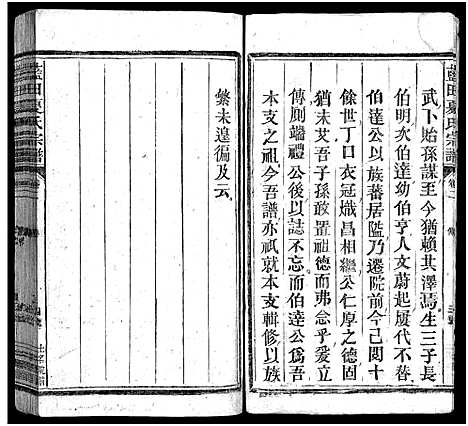 藍田夏氏宗譜
武卜貽孫謀至今猶賴其澤焉生三子長
伯明次伯達幼伯亨人文蔚起屢代不替
伯達公以族蕃居隘乃遷院前今已閱十
餘世丁口衣冠熾昌相繼公仁厚之德固
猶未艾吾子孫敢罢祖德而弗念乎爰立
傳厠端禮公後以誌不忘而伯達公爲吾
本支之祖今吾譜亦祇就本支輯修以族
繁未遑徧及云
藍田夏氏宗譜